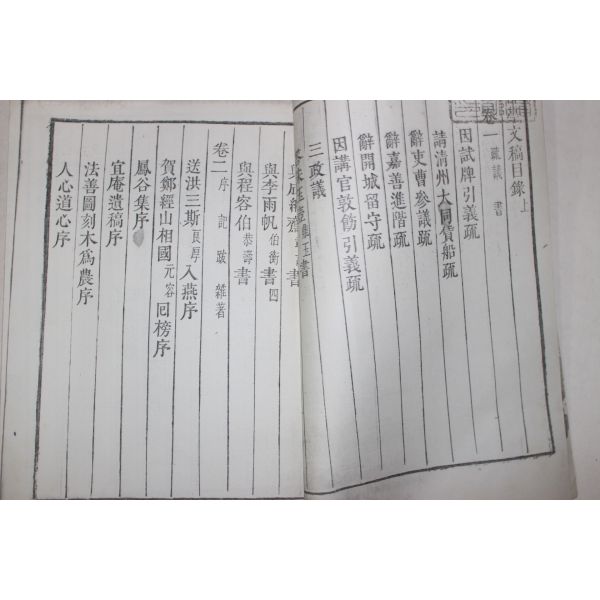 文稿目錄上
卷一 疏 議 書
因試牌引義疏
請清州大同賃船疏
辭吏曹參議疏
辭嘉善進階疏
辭開城留守疏
因講官敦飭引義疏
三政議
書
與李雨帆伯衡書四
與程容伯恭壽書
卷二 序 記 跋 雜著
送洪三斯良厚入燕序
賀鄭經山相國元容回榜序
鳳谷集序
宜庵遺稿序
法善圖刻木爲農序
人心道心序